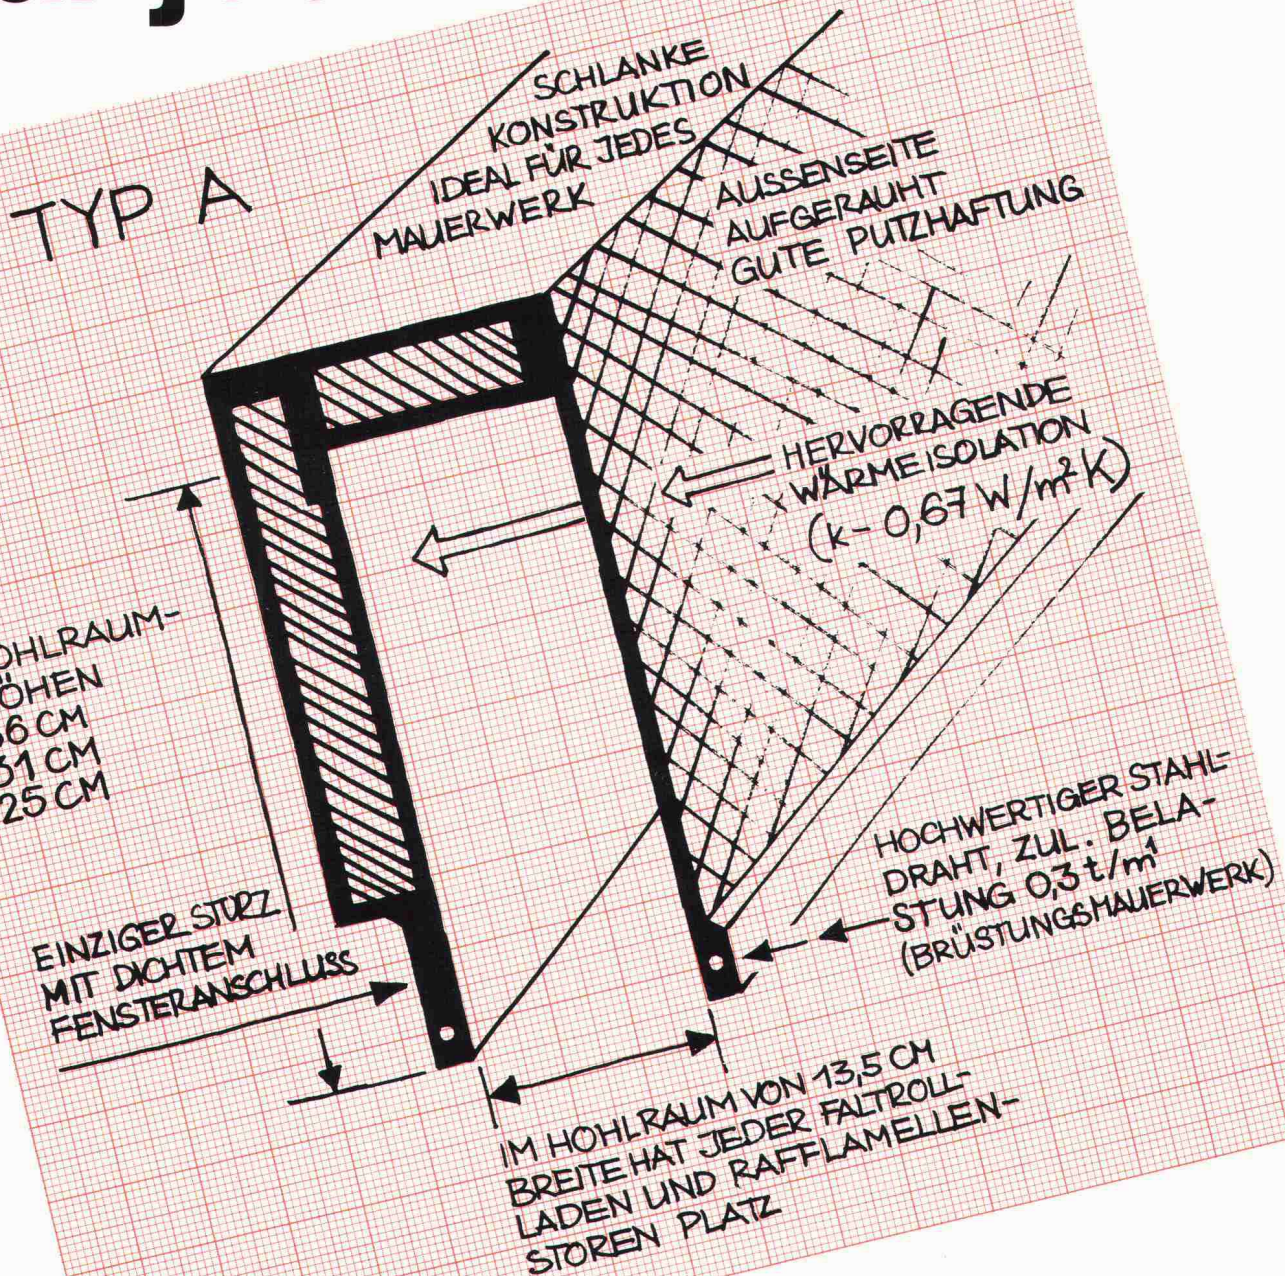 TYP A
SCHLANKE
KONSTRUKTION
IDEAL FÜR JEDES
MAUERWERK
AUSSENSEITE
AUFGERAUHT
GUTE PUTZHAFTUNG
HERVORRAGENDE
WÄRMEISOLATION
(k- 0,67 W/m²K)
OHLRAUM-
ÖHEN
36 CM
31 CM
25 CM
EINZIGER STURZ
MIT DICHTEM
FENSTERANSCHLUSS
HOCHWERTIGER STAHL-
DRAHT, ZUL. BELA-
STUNG 0,3 t/m¹
(BRÜSTUNGSMAUERWERK)
IM HOHLRAUM VON 13,5 CM
BREITE HAT JEDER FALTROLL-
LADEN UND RAFFLAMELLEN-
STOREN PLATZ